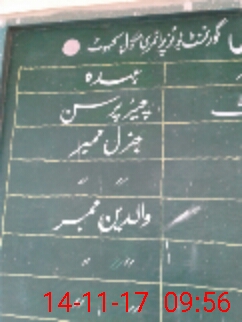 گورنمنٹ بوائز پرائمری سکول
عہدہ
چیئر پرسن
جنرل ممبر
〃 〃
والدین ممبر
〃 〃
14-11-17 09:56